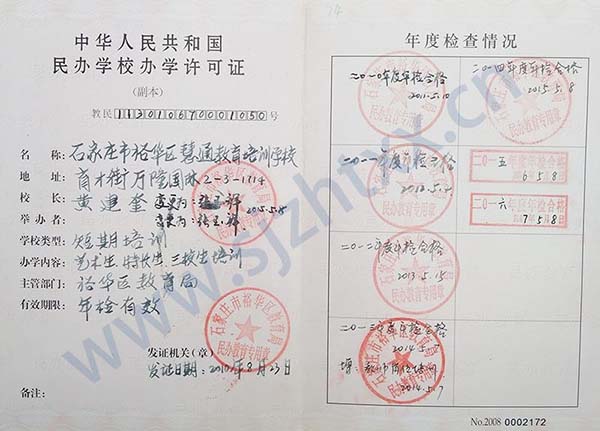 中华人民共和国
民办学校办学许可证
(副本)
教民 113010670001050 号
名称: 石家庄市裕华区慧通教育培训学校
地址: 育才街万隆园林2-3-1714
校长: 黄建奎 变更为:张玉祥 2015.5.8
举办者: 变更为:张玉祥
学校类型: 短期培训
办学内容: 艺术生、特长生 三校生培训
主管部门: 裕华区教育局
有效期限: 年检有效
石家庄市裕华区教育局
民办教育专用章
发证机关(章)
发证日期: 2010年8月23日
备注:
年度检查情况
二〇一〇年度年检合格
2011.5.10
二〇一四年度年检合格
2015.5.8
二〇一一年度年检合格
二〇一五年度年检合格
二〇一六年度年检合格
二〇一二年度年检合格
2013.5.15
二〇一三年度年检合格
2014.5.7
No.2008 0002172
www.sjzhtxx.cn